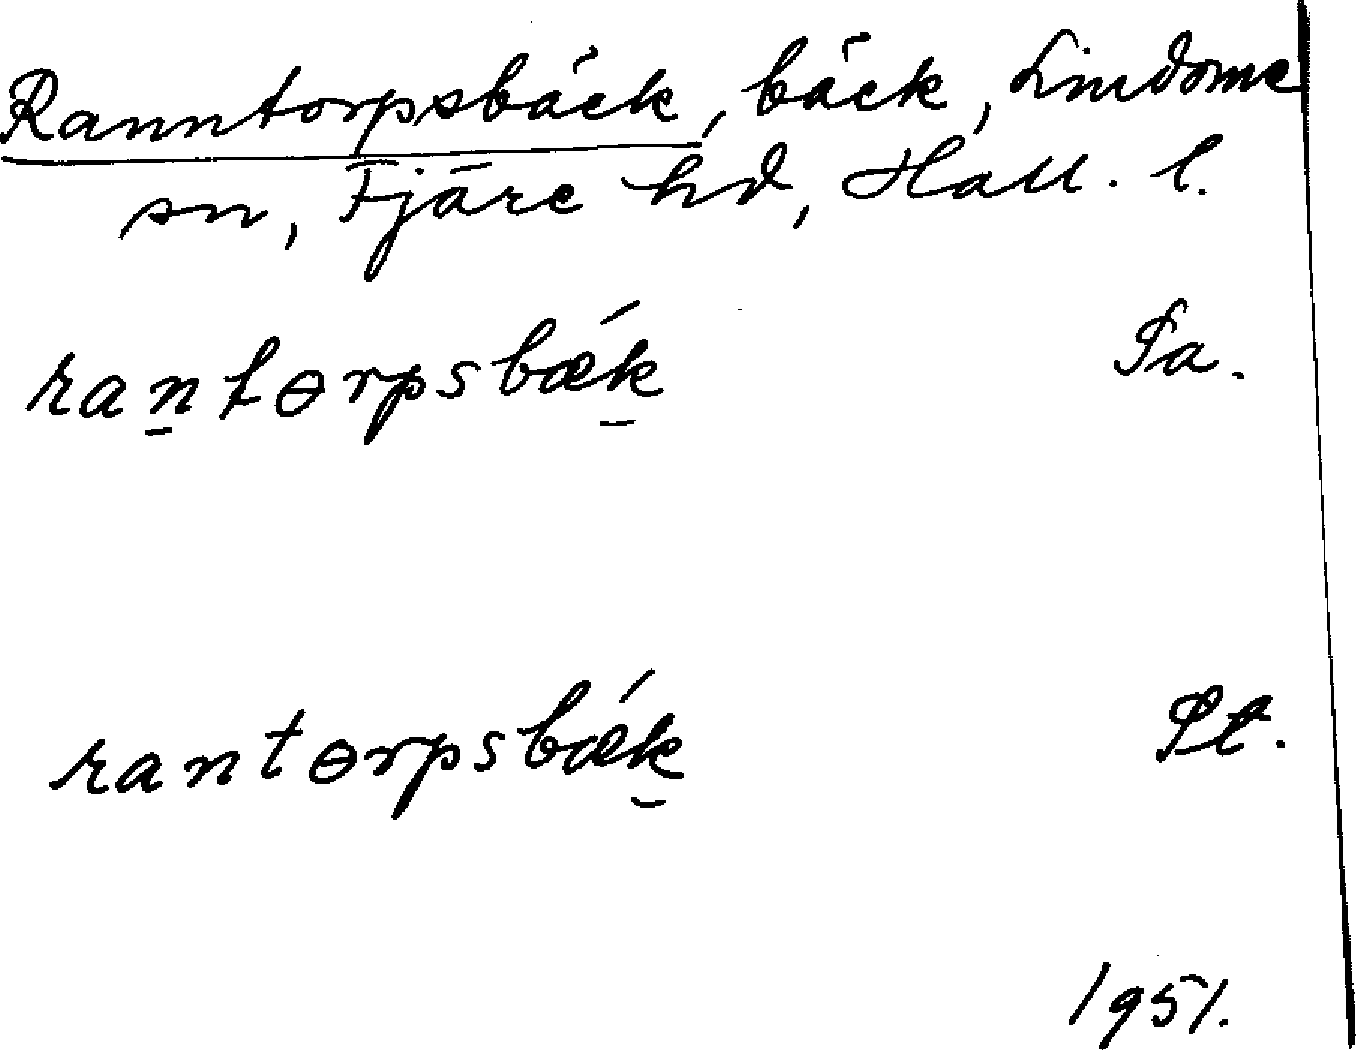 Ranntorpsbäck, bäck, Lindome
sn, Fjäre hd, Hall. l.
rantɵrpsbǽk Pa.
rantɵrpsbǽk Pt.
1951.